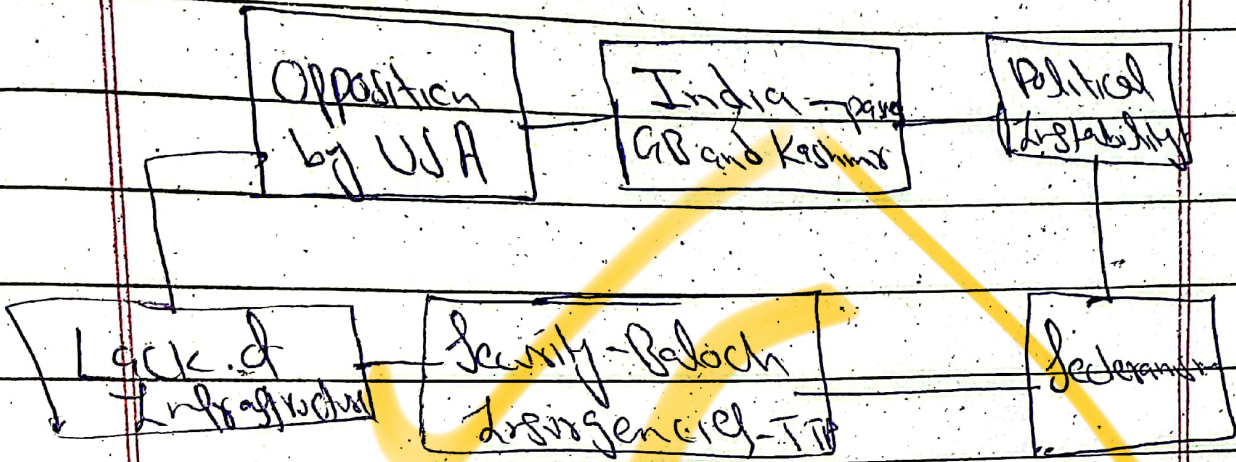 Opposition
by USA
India - pass
GB and Kashmir
Political
Instability
Lack of
Infrastructure
Security - Baloch
Insurgencies - TTP